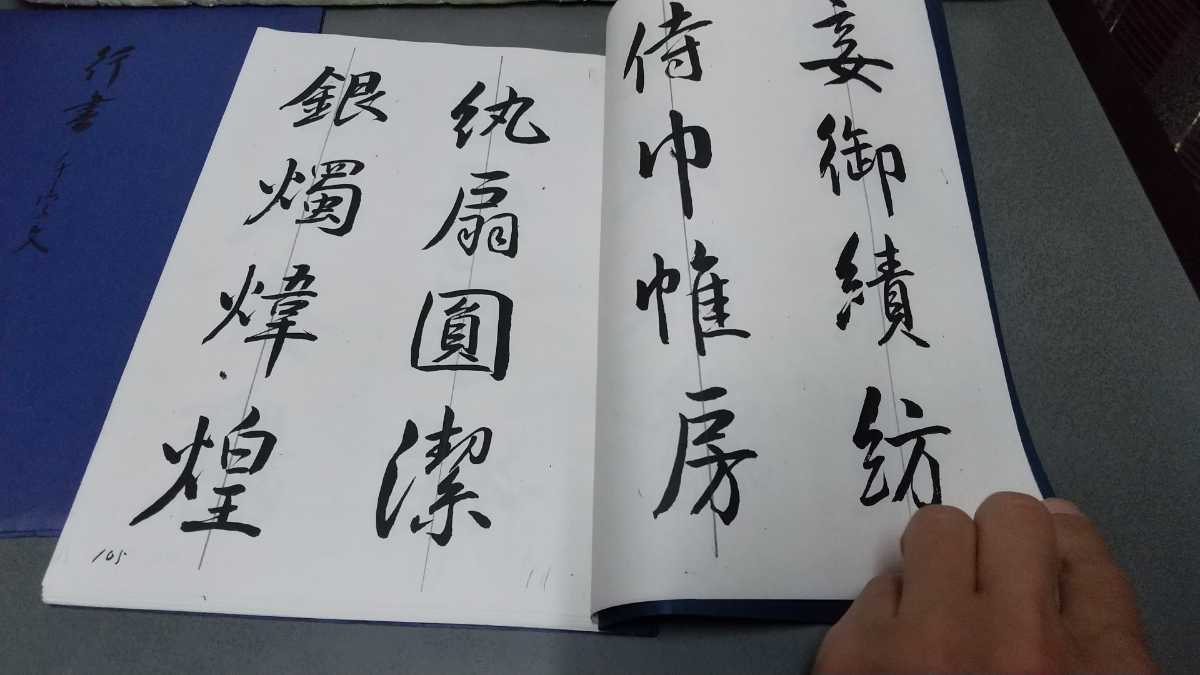 妾御績紡
侍巾帷房
紈扇圓潔
銀燭煒煌
105
行書千字文